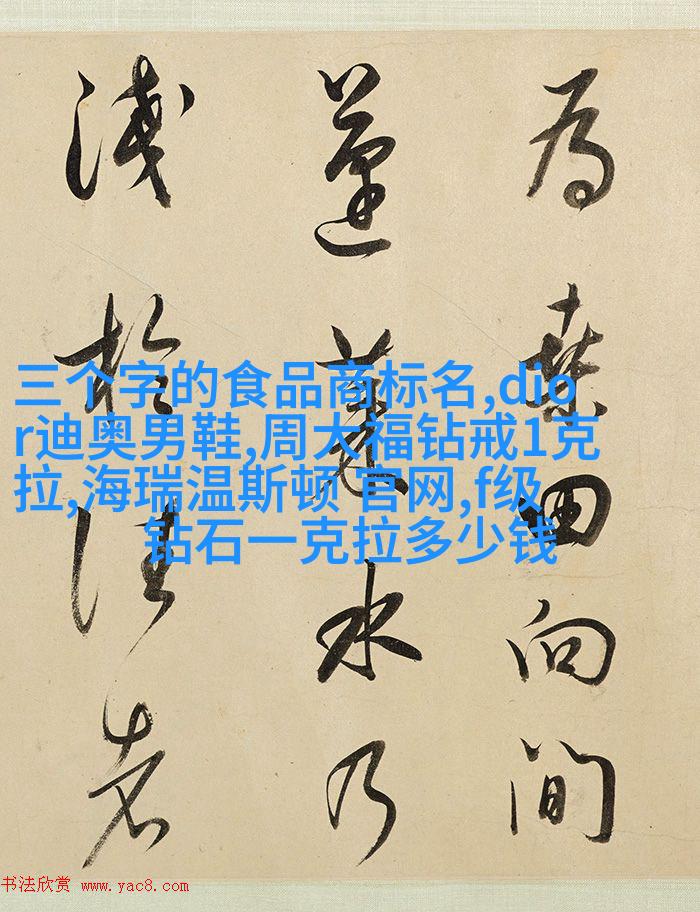 為桑田向間
蓬萊水乃
淺於往者
三个字的食品商标名,dio
r迪奥男鞋,周大福钻戒1克
拉,海瑞温斯顿 官网,f级
钻石一克拉多少钱
书法欣赏 www.yac8.com